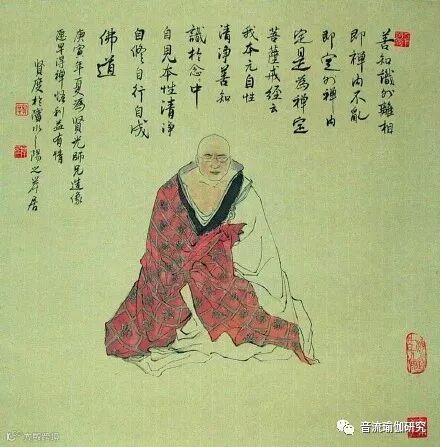 善知識外離相
即禪內不亂
即定外禪內
定是為禪定
菩薩戒經云
我本元自性
清淨善知
識於念〻中
自見本性清淨
自修自行自成
佛道
庚寅年夏為賢光師兄造像
愿早得禪悟利益有情
音流瑜伽研究